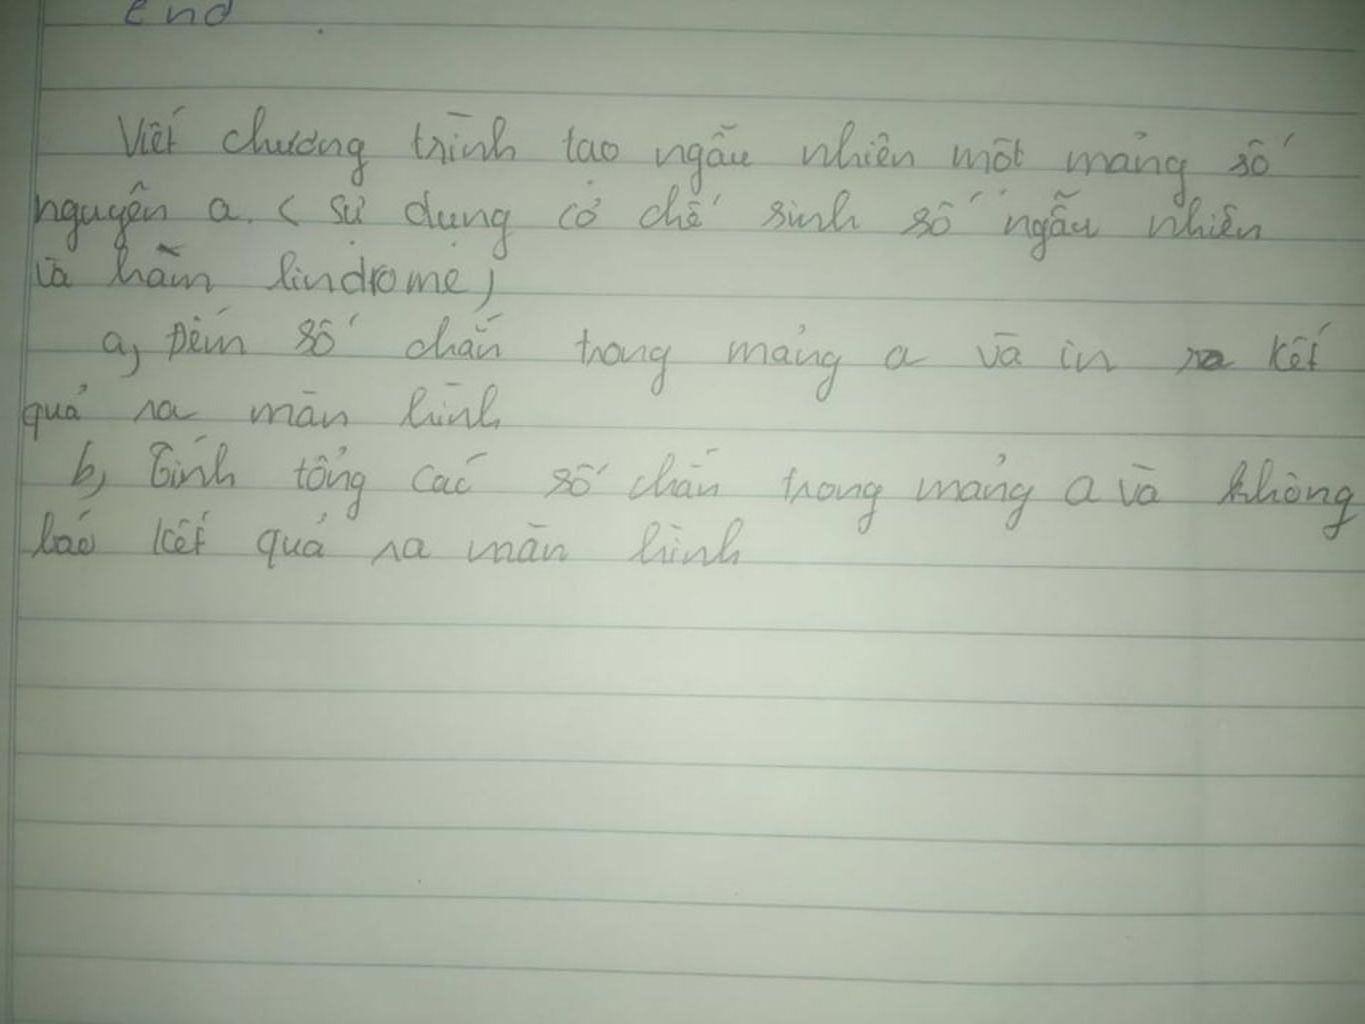 End
Viết chương trình tạo ngẫu nhiên một mảng số
nguyên a. ( sử dụng cơ chế sinh số ngẫu nhiên
và hàm lindrome)
a, Đếm số chẵn trong mảng a và in ra kết
quả ra màn hình
b, Tính tổng các số chẵn trong mảng a và không
báo kết quả ra màn hình